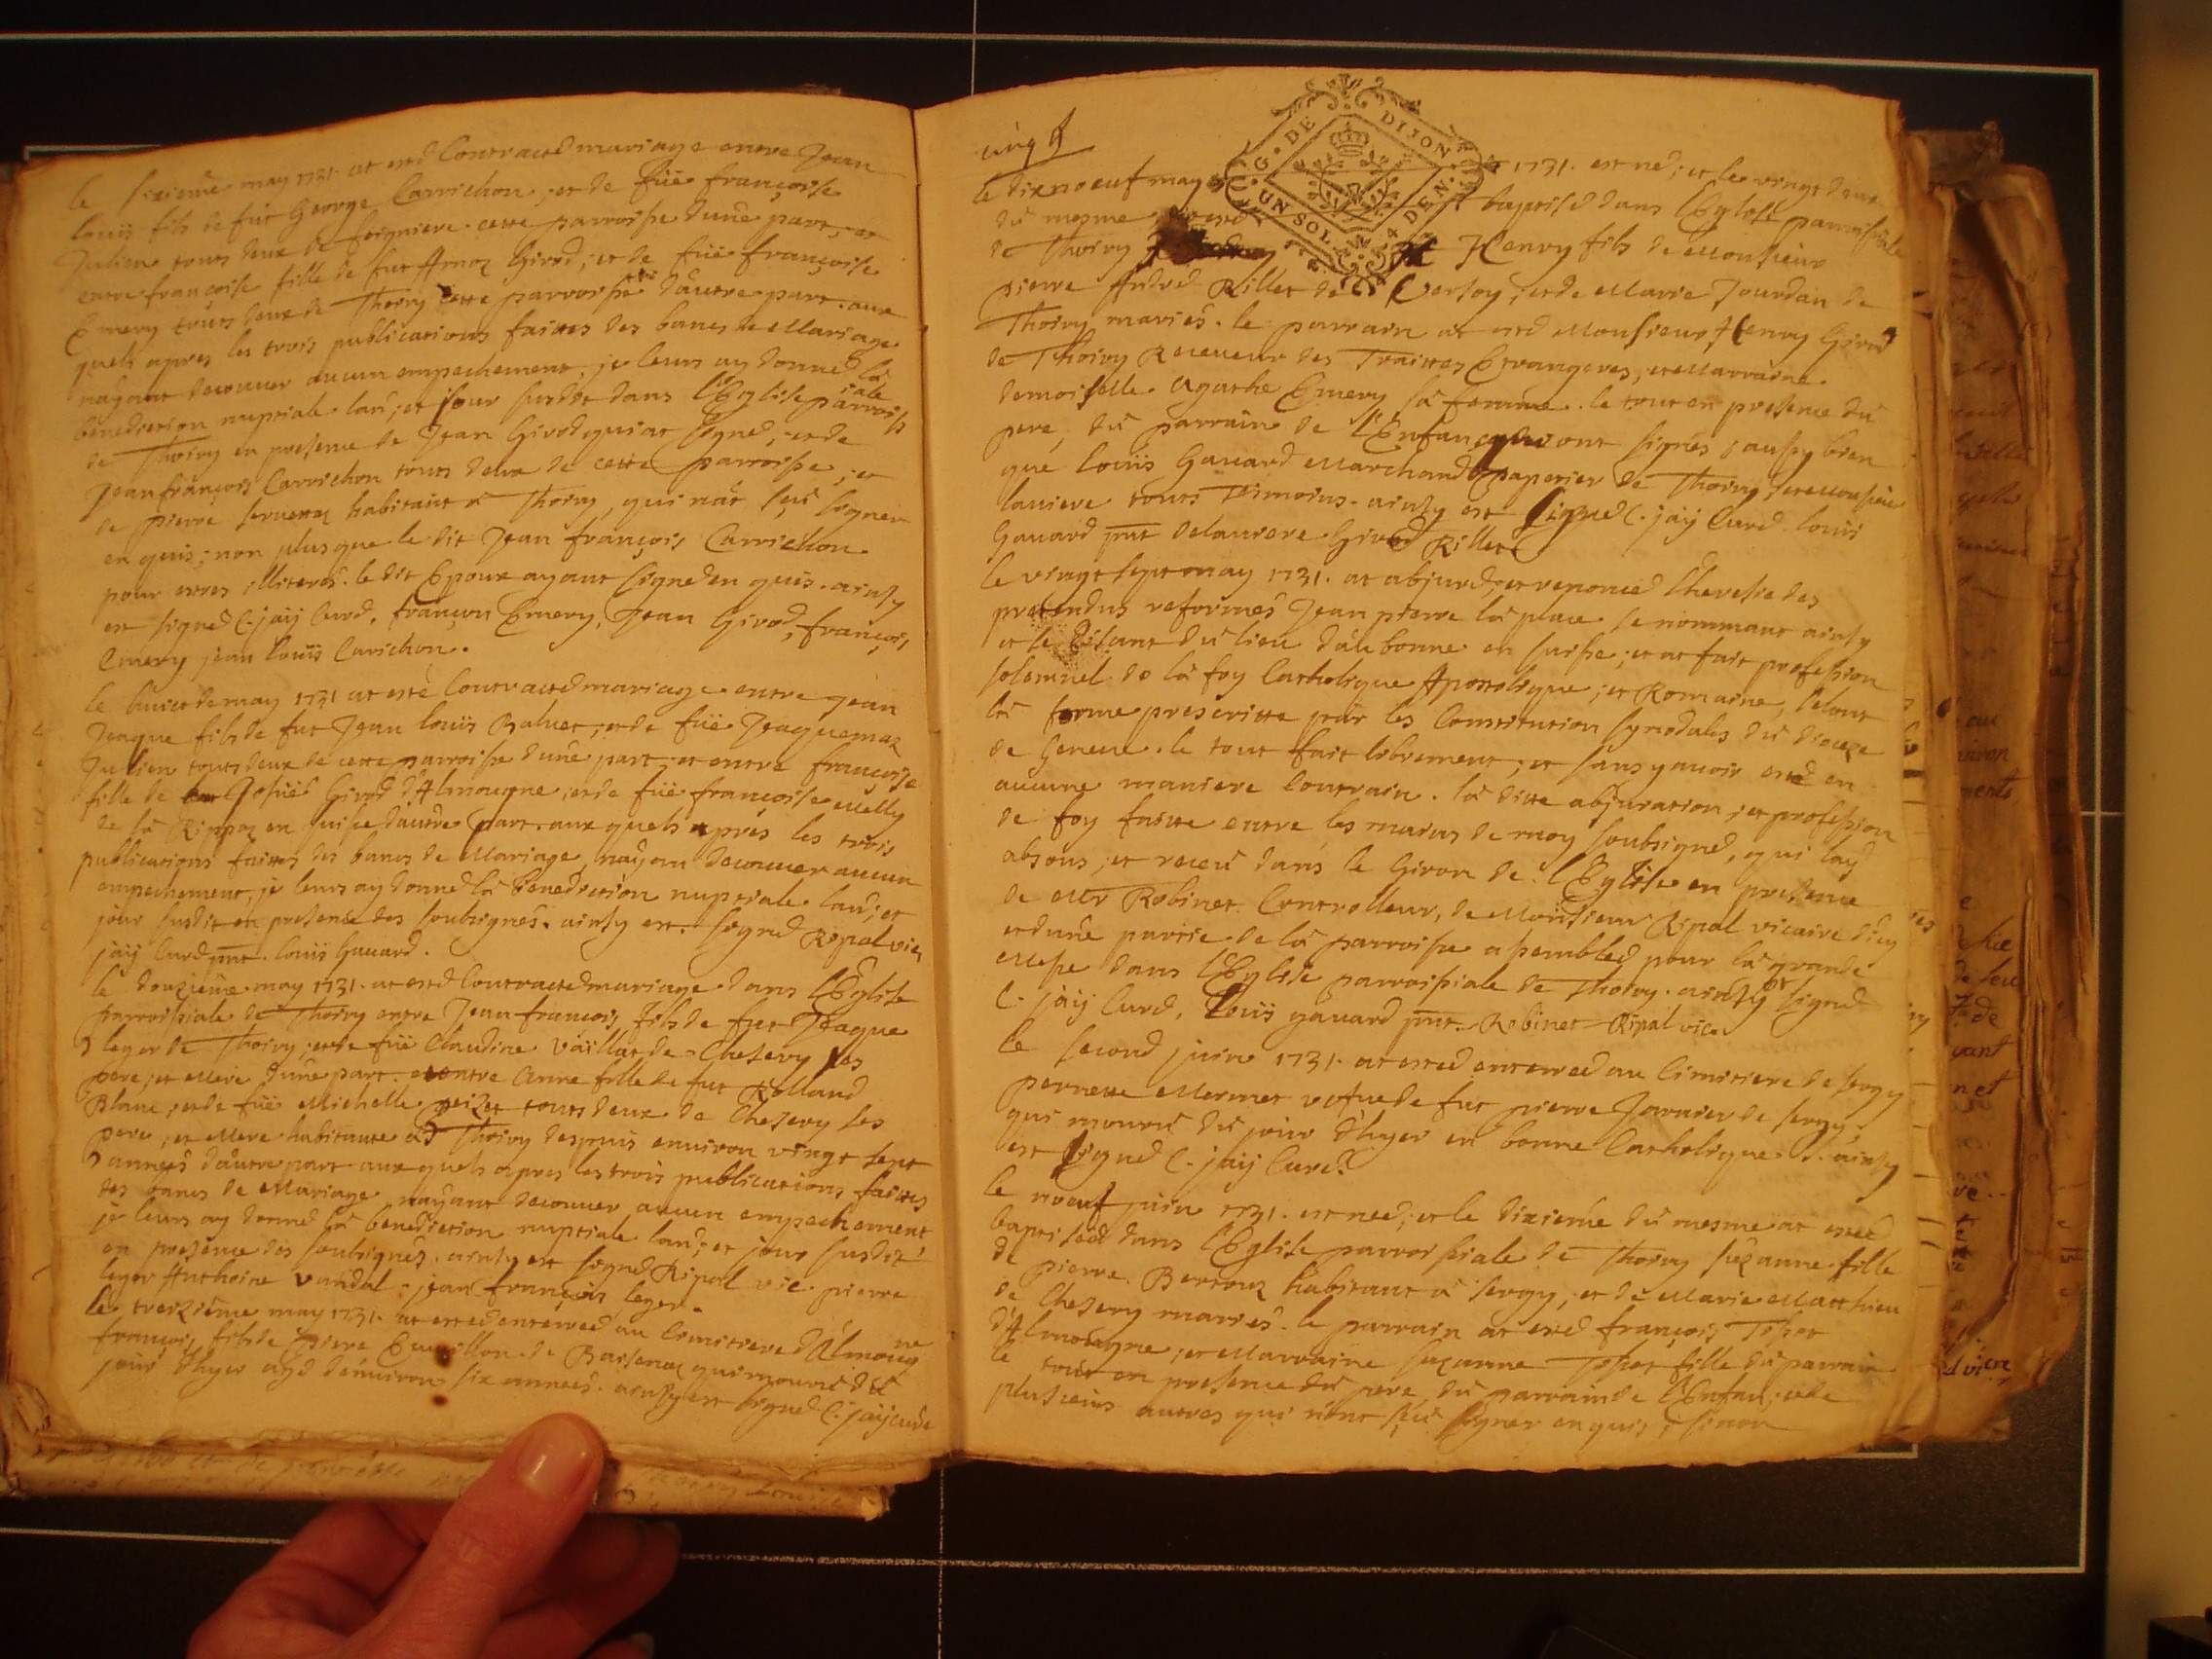 le sixieme may 1731 at esté Contracté mariage entre Jean
louis fils de fut George Carrichon, et de füe françoise
Julien touts deux de feigniere cette parroisse dune part, et
entre françoise fille de fut Girod; et de füe françoise
Emery touts deux de Thoiry cette parroisse d'autre part. aux
quels apres les trois publications faittes des bancs de Mariage
nayant decouver aucun empechement, je leurs ay donné la
benediction nuptiale lan; et jour susdit dans l'Eglise parroissiale
de Thoiry en presence de Jean Girod qui at signé, et de
Jean françois Carrichon touts deux de cette parroisse; et
de pierre habitant a Thoiry, qui nat sçü signer
en quis; non plus que le dit Jean françois Carrichon
pour estres illiterés. le dit Epoux ayant signé en quis. ainsy
est signé C. jaÿ Curé, françois Emery, Jean Girod, françois
Emery jean louis Carichon.
le huict de may 1731 at esté Contracté mariage entre jean
Jeaque fils de fut Jean louis Baluet, et de füe Jeaquemaz
Julien touts deux de cette parroisse dune part, et entre françoise
fille de Josüé Girod d'Almougne, et de füe françoise Melly
de la Rippaz en suisse dautre part. aux quels aprés les trois
publications faittes des bancs de Mariage, nayant decouver aucun
empechement, je leurs ay donné la benediction nuptiale lan; et
jour susdit en presence des soubsignés. ainsy est signé Ripal vic
jaÿ Curé pnt. louis Gauard.
le douzieme may 1731. at esté Contracté mariage dans l'Eglise
parroissiale de Thoiry entre Jean françois fils de fut Jeaque
leger de Thoiry; et de füe Claudine de Chesery ses
pere; et Mere dune part. et entre Anne fille de fut Rolland
Blanc, et de füe Michelle touts deux de Chesery ses
pere, et Mere habitante a Thoiry despuis environ vingt sept
années d'autre part aux quels apres les trois publications faittes
des bancs de Mariage nayant decouver aucun empechement
je leurs ay donné la benediction nuptiale lan; et jour susdit
en presence des soubsignés. ainsy est signé Ripal vic. pierre
leger Anthoine Vandal. jean françois leger.
le treizieme may 1731. at esté enterré au Cimitiere d'Almougne
françois fils de pierre de qui mourut du
jour d'hyer agé d'environ six années. ainsy est signé C. jaÿ curé
cinq
G. DE DIJON
UN SOL 4 DEN.
le dix noeuf may 1731. est né; et le vingt deux
du mesme at esté baptisé dans l'Eglise parroissiale
de Thoiry Henry fils de Monsieur
pierre André Rillet de Versoy, et de Marie Jourdan de
Thoiry mariés. le parrain at esté Monsieur Henry Girod
de Thoiry Receveur des Traittes Etrangeres, et Marraine
demoiselle Agathe Emery sa femme. le tout en presence du
pere, du parrain de l'Enfan qui ont signés, aussy bien
que louis Gauard Marchand papetier de Thoiry, et Monsieur
laniere touts tesmoins. ainsy est signé C. jaÿ Curé. louis
Gauard pnt Girod Rillet
le vingt sept may 1731. at abjuré, et renoncé L'heresie des
pretendus reformés Jean pierre la place se nommant ainsy
et se disant du lieu d'aubonne en suisse; et at fait profession
solemnel de la foy Catholique Apostolique; et Romaine, selont
la forme prescritte par les Constitution synodales du dioceze
de Geneve. le tout fait librement; et sans y avoir esté en
aucune maniere Contrain. la ditte abjuration; et profession
de foy faitte entre les mains de moy soubsigné, qui lay
absous; et receu dans le Giron de l'Eglise en presence
de Mr Robinet Controlleur, de Monsieur Ripal vicaire d'icy
et dune partie de la parroisse assemblée pour la grande
Messe dans l'Eglise parroissiale de Thoiry. ainsy est signé
C. jaÿ Curé, louis gauard pnt. Robinet Ripal vic.
le second juin 1731. at esté enterrée au Cimitiere de sergy
pernette Mermet vefue de fut pierre de sergy
qui mourut du jour d'hyer en bonne Catholique. ainsy
est signé C. jaÿ Curé.
le noeuf juin 1731. est née; et le dixieme du mesme at estée
baptisée dans l'Eglise parroissiale de Thoiry suzanne fille
de pierre habitant a sergy, et de Marie Matthieu
de Chesery mariés. le parrain at esté françois
d'Almougne; et Marraine suzanne fille du parrain
le tout en presence du pere, du parrain de l'Enfan, et de
plusieurs autres qui n'ont sçu signer en quis, sinon